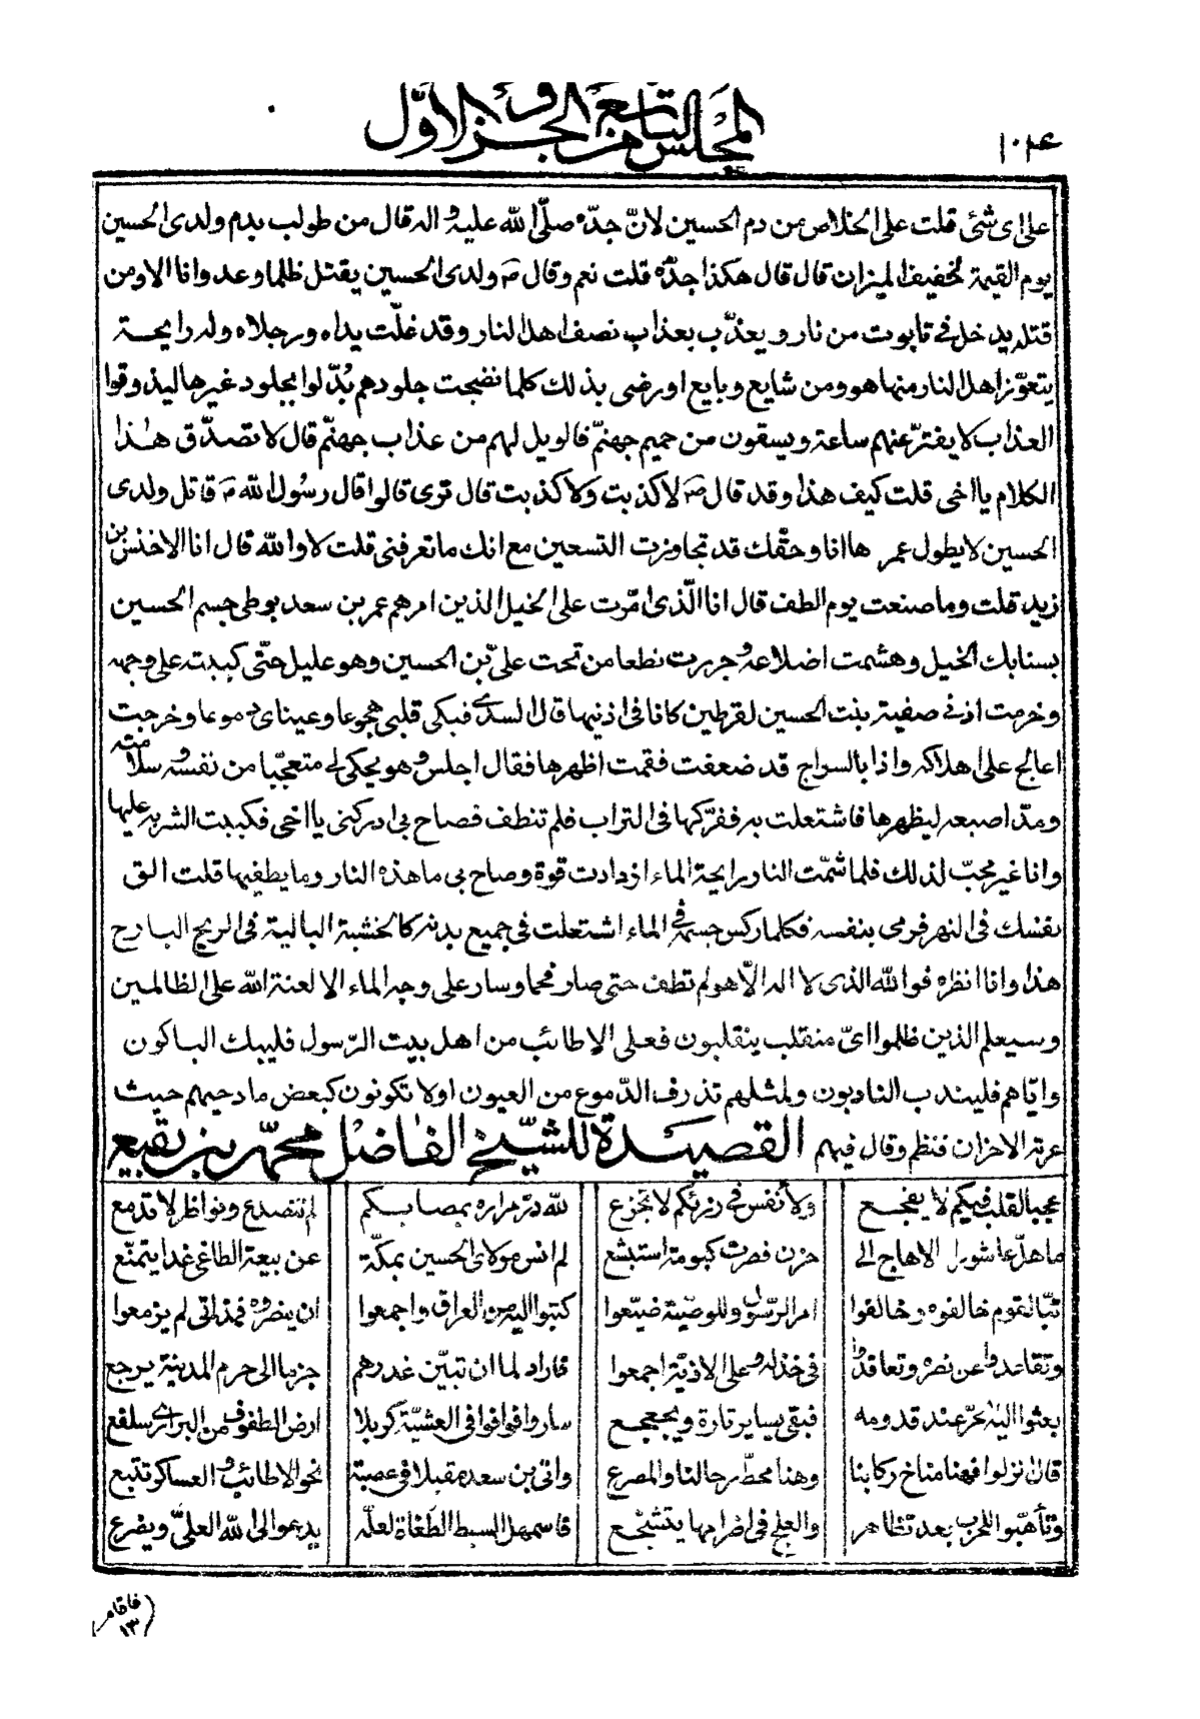 ١٠٤
المجلس التاسع من الجزء الاوّل
على اى شئ قلت على الخلاص من دم الحسين لانّ جدّه صلّى الله عليه واله قال من طولب بدم ولدى الحسين
يوم القيمة لخفيف الميزان قال قال هكذا جدّه قلت نعم وقال ص ولدى الحسين يقتل ظلما وعدوانا الا ومن
قتله يدخل فى تابوت من نار ويعذّب بعذاب نصف اهل النار وقد غلّت يداه ورجلاه وله رايحة
يتعوّذ اهل النار منها هو ومن شايع وبايع او رضى بذلك كلما نضجت جلودهم بُدّلوا بجلود غيرها ليذوقوا
العذاب لا يفترّ عنهم ساعة ويسقون من حميم جهنّم فالويل لهم من عذاب جهنّم قال لا تصدّق هذا
الكلام يا اخى قلت كيف هذا وقد قال ص لا كذبت ولا كذبت قال ترى قالوا قال رسُول الله ص قاتل ولدى
الحسين لا يطول عمر ها انا وحقّك قد تجاوزت التسعين مع انك ما تعرفنى قلت لا والله قال انا الاخنس بن
زيد قلت وما صنعت يوم الطف قال انا الّذى امّرت على الخيل الذين امرهم عمر بن سعد بوطى جسم الحسين
بسنابك الخيل وهشمت اضلاعه وجررت نطعا من تحت علىّ بن الحسين وهو عليل حتّى كببته على وجهه
وخرمت اذنى صفية بنت الحسين لقرطين كانا فى اذنيها قال السدى فبكى قلبى هجوعا وعيناى دموعا وخرجت
اعالج على اهلاكه واذا بالسراج قد ضعفت فقمت اظهرها فقال اجلس وهو يحكى لى متعجّبا من نفسه وسلامته
ومدّ اصبعه ليظهرها فاشتعلت به ففرّكها فى التراب فلم تنطف فصاح بى ادركنى يا اخى فكببت الشربة عليها
وانا غير محبّ لذلك فلما شمّت النار رايحة الماء ازدادت قوة وصاح بى ما هذه النار وما يطفيها قلت الق
نفسك فى النهر فرمى بنفسه فكلما ركس جسمه فى الماء اشتعلت فى جميع بدنه كالخشبة البالية فى الريح البارح
هذا وانا انظره فوالله الذى لا اله الّا هو لم تطف حتى صار فحما وسار على وجه الماء الا لعنة الله على الظالمين
وسيعلم الذين ظلموا اىّ منقلب ينقلبون فعلى الاطائب من اهل بيت الرّسول فليبك الباكون
وايّاهم فليندب النادبون ولمثلهم تذرف الدّموع من العيون اولا تكونون كبعض مادحيهم حيث
عرته الاحزان فنظم وقال فيهم القصيدة للشيخ الفاضل محمّد بن نقيع
عجبا لقلب فيكم لا يفجع ولأنفس فى رزئكم لا تجزع لله در مراره بمصابكم لم تتصدع ونواظر لا تدمع
ما هلّ عاشور الا هاج لى حزن فصرت كبومة استبشع لم انس مولاى الحسين بمكّة عن بيعة الطاغى غدا يتمنّع
تبّا لقوم خالفوه وخالفوا امر الرّسول وللوصيّة ضيّعوا كتبوا اليه من العراق واجمعوا ان ينصروه فمذ اتى لم يزمعوا
وتقاعدوا عن نصره وتعاقدوا فى خذله وعلى الاذيّة اجمعوا فاراد لما ان تبيّن غدرهم جزما الى حرم المدينة يرجع
بعثوا اليه الحرّ عند قدومه فبقى يساير تارة ويجعجع ساروا فوافوا فى العشيّة كربلا ارض الطفوف من البرارى سلفع
قال نزلوا فهنا مناخ ركابنا وهنا محطّ رحالنا والمصرع واتى بن سعد مقبلا فى عصبة نحو الاطائب والعساكر تتبع
وتأهبّوا للحرب بعد تظاهر والعلج فى اضرامها يتشجّع فاسمهل السبط الطّغاة لعلّه يدعو الى الله العلىّ ويضرع
١٣